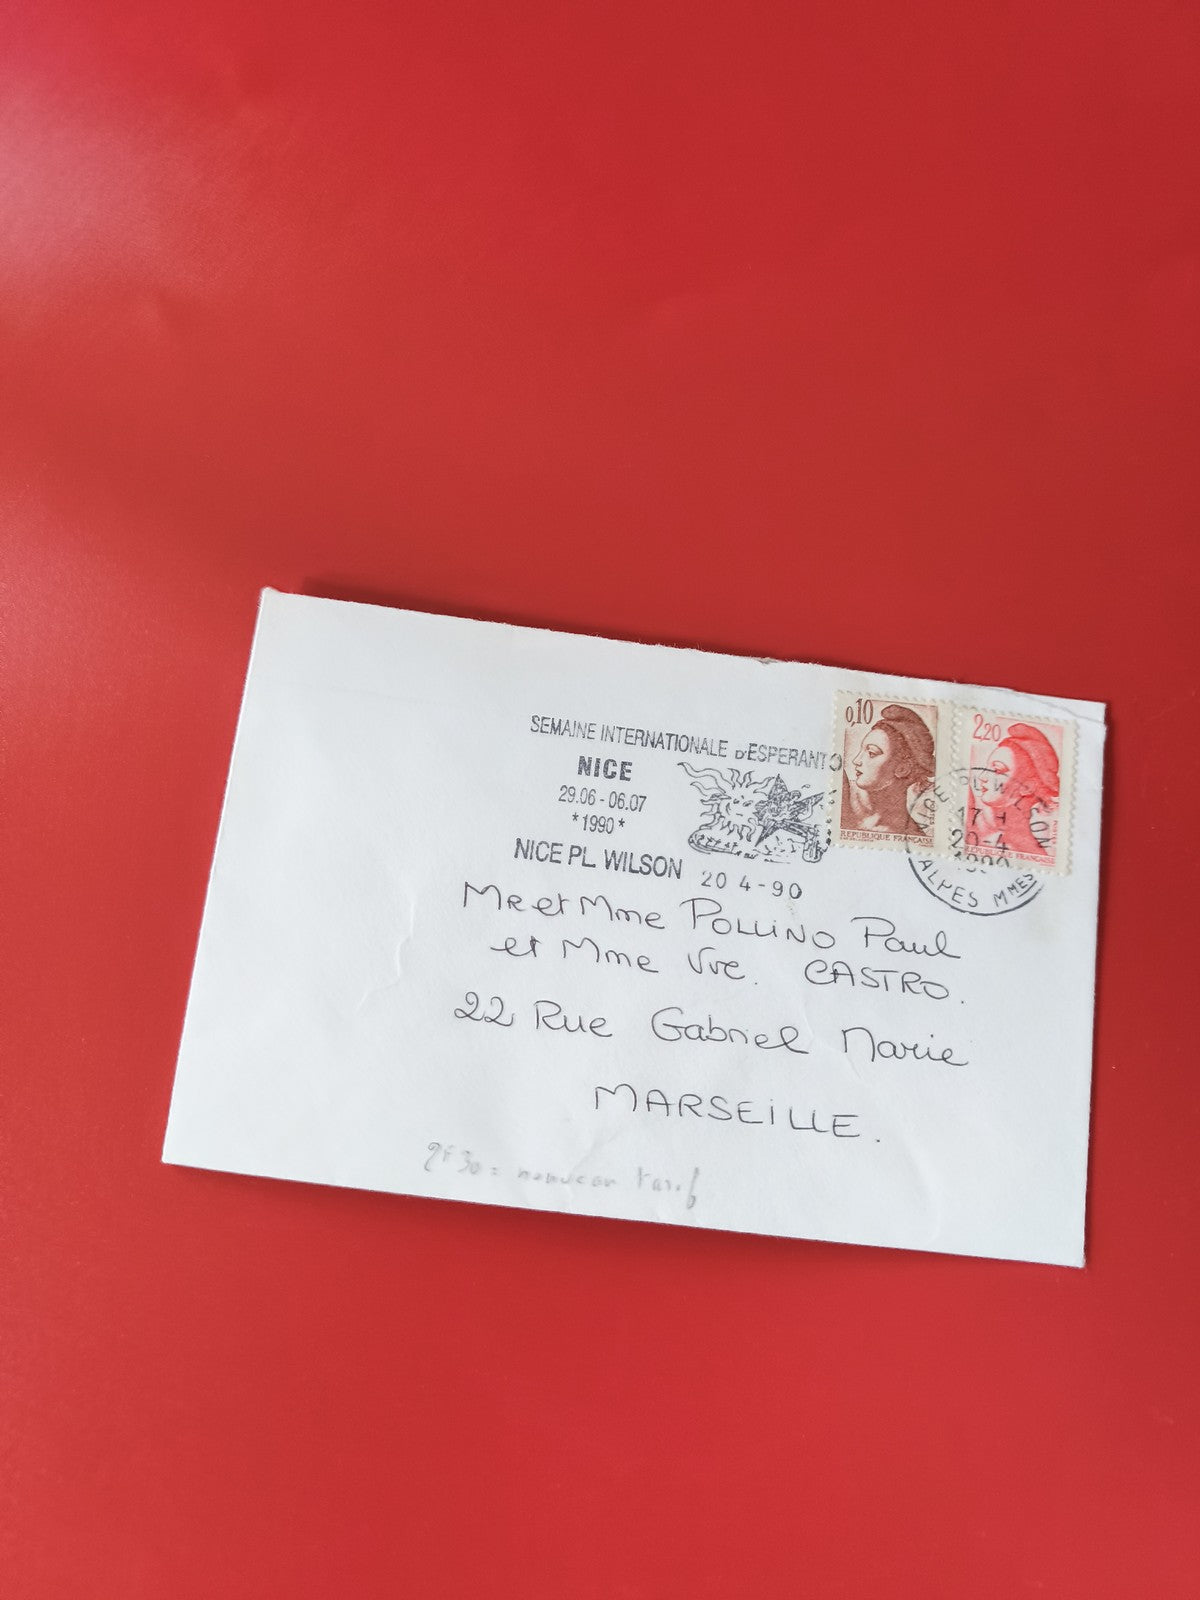 SEMAINE INTERNATIONALE D'ESPERANTO
NICE
29.06 - 06.07
*1990*
NICE PL. WILSON 20 4 - 90
0,10
REPUBLIQUE FRANCAISE
2,20
REPUBLIQUE FRANCAISE
NICE PL. WILSON
17 H
20-4
1990
ALPES MMES
Mr et Mme POLLINO Paul
et Mme Vve. CASTRO.
22 Rue Gabriel Marie
MARSEILLE.
2F30 = nouveau tarif